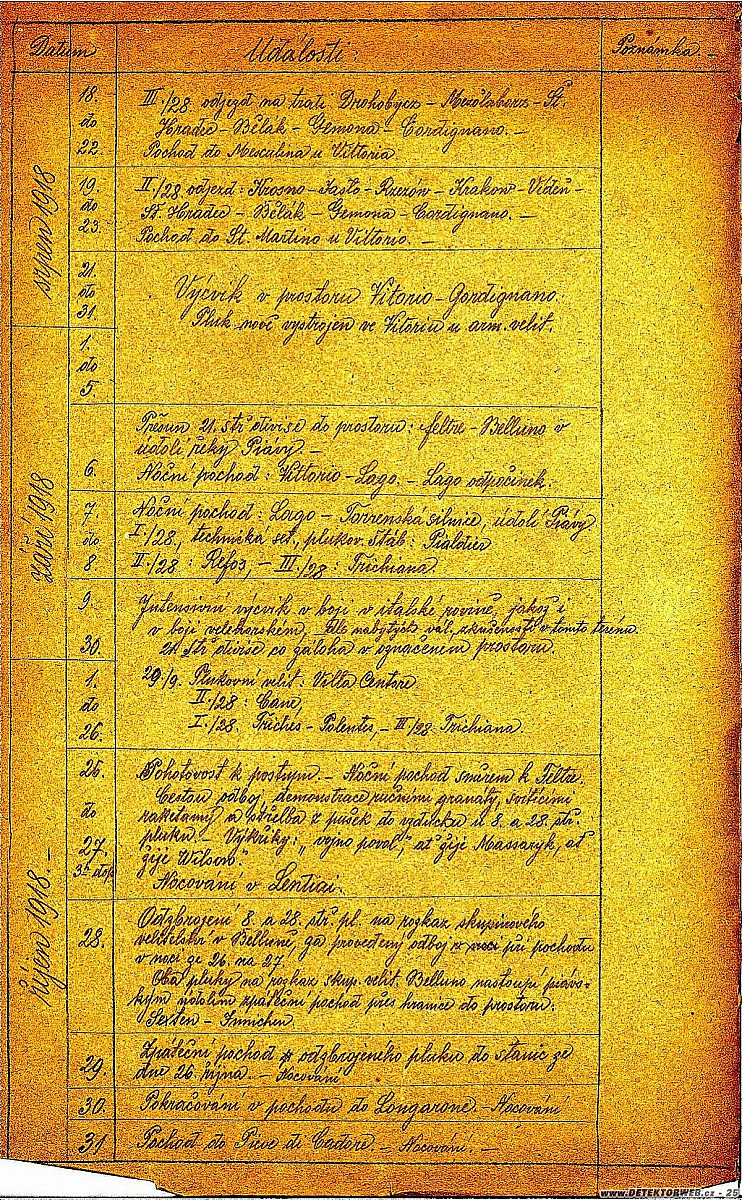 Datum
Události:
Poznámka –
srpen 1918
18.
do
22.
III./28. odjezd na trati Drohobycz – Mezölaborcz – Št.
Hradec – Bělák – Gemona – Cordignano. –
Pochod do Mesculina u Vittoria.
19.
do
23.
II./28 odjezd: Krosno – Jaslo – Rzezow – Krakow – Videň –
Št. Hradec – Bělák – Gemona – Cordignano. –
Pochod do St. Martino u Vittorio. –
21.
do
31.
Výcvik v prostoru Vitorio – Gordignano.
Pluk nově vystrojen ve Vitoriu u arm. velit.
září 1918
1.
do
5.
Přesun 21. stř divise do prostoru: Feltre – Belluno v
údolí řeky Piávy. –
6.
Noční pochod: Vittorio – Lago. – Lago odpočinek.
7.
do
8
Noční pochod: Lago – silnice, údolí Piávy
I./28., technická set., plukov. štáb:
II./28: Refos, – III./28: Trichiana.
9.
30.
Intensivní výcvik v boji v italské rovině, jakož i
v boji velehorském, dle nabytých vál. zkušeností v tomto terénu.
21. stř divise co záloha v označeném prostoru.
říjen 1918. –
1.
do
26.
29/9. Plukovní velit: Villa Centore
II./28: Cane,
I./28. Triches – Polentes, – III/28. Trichiana.
26.
do
27.
Pohotovost k postupu. – Noční pochod směrem k Feltre.
Cestou odboj, demonstrace ručními granáty, svítícími
raketamy a střelba z pušek do vzduchu u 8. a 28. stř.
pluku. – Výkřiky: „vojno povol", ať žije Massaryk, ať
žije Wilson"
Nocování v Lentiai.
28.
Odzbrojení 8. a 28. stř. pl. na rozkaz skupinového
velitelství v Belluně, za provedený odboj při pochodu
v noci ze 26. na 27.
Oba pluky na rozkaz skup. velit. Belluno nastoupí piáv-
ským údolím zpáteční pochod přes hranice do prostoru:
Sexten – Innichen.
29.
Zpáteční pochod odzbrojeného pluku do stanic ze
dne 26. října. – Nocování
30.
Pokračování v pochodu do Longarone. – Nocování
31
Pochod do Pieve di Cadore. – Nocování. –
www.DETEKTORWEB.cz - 25